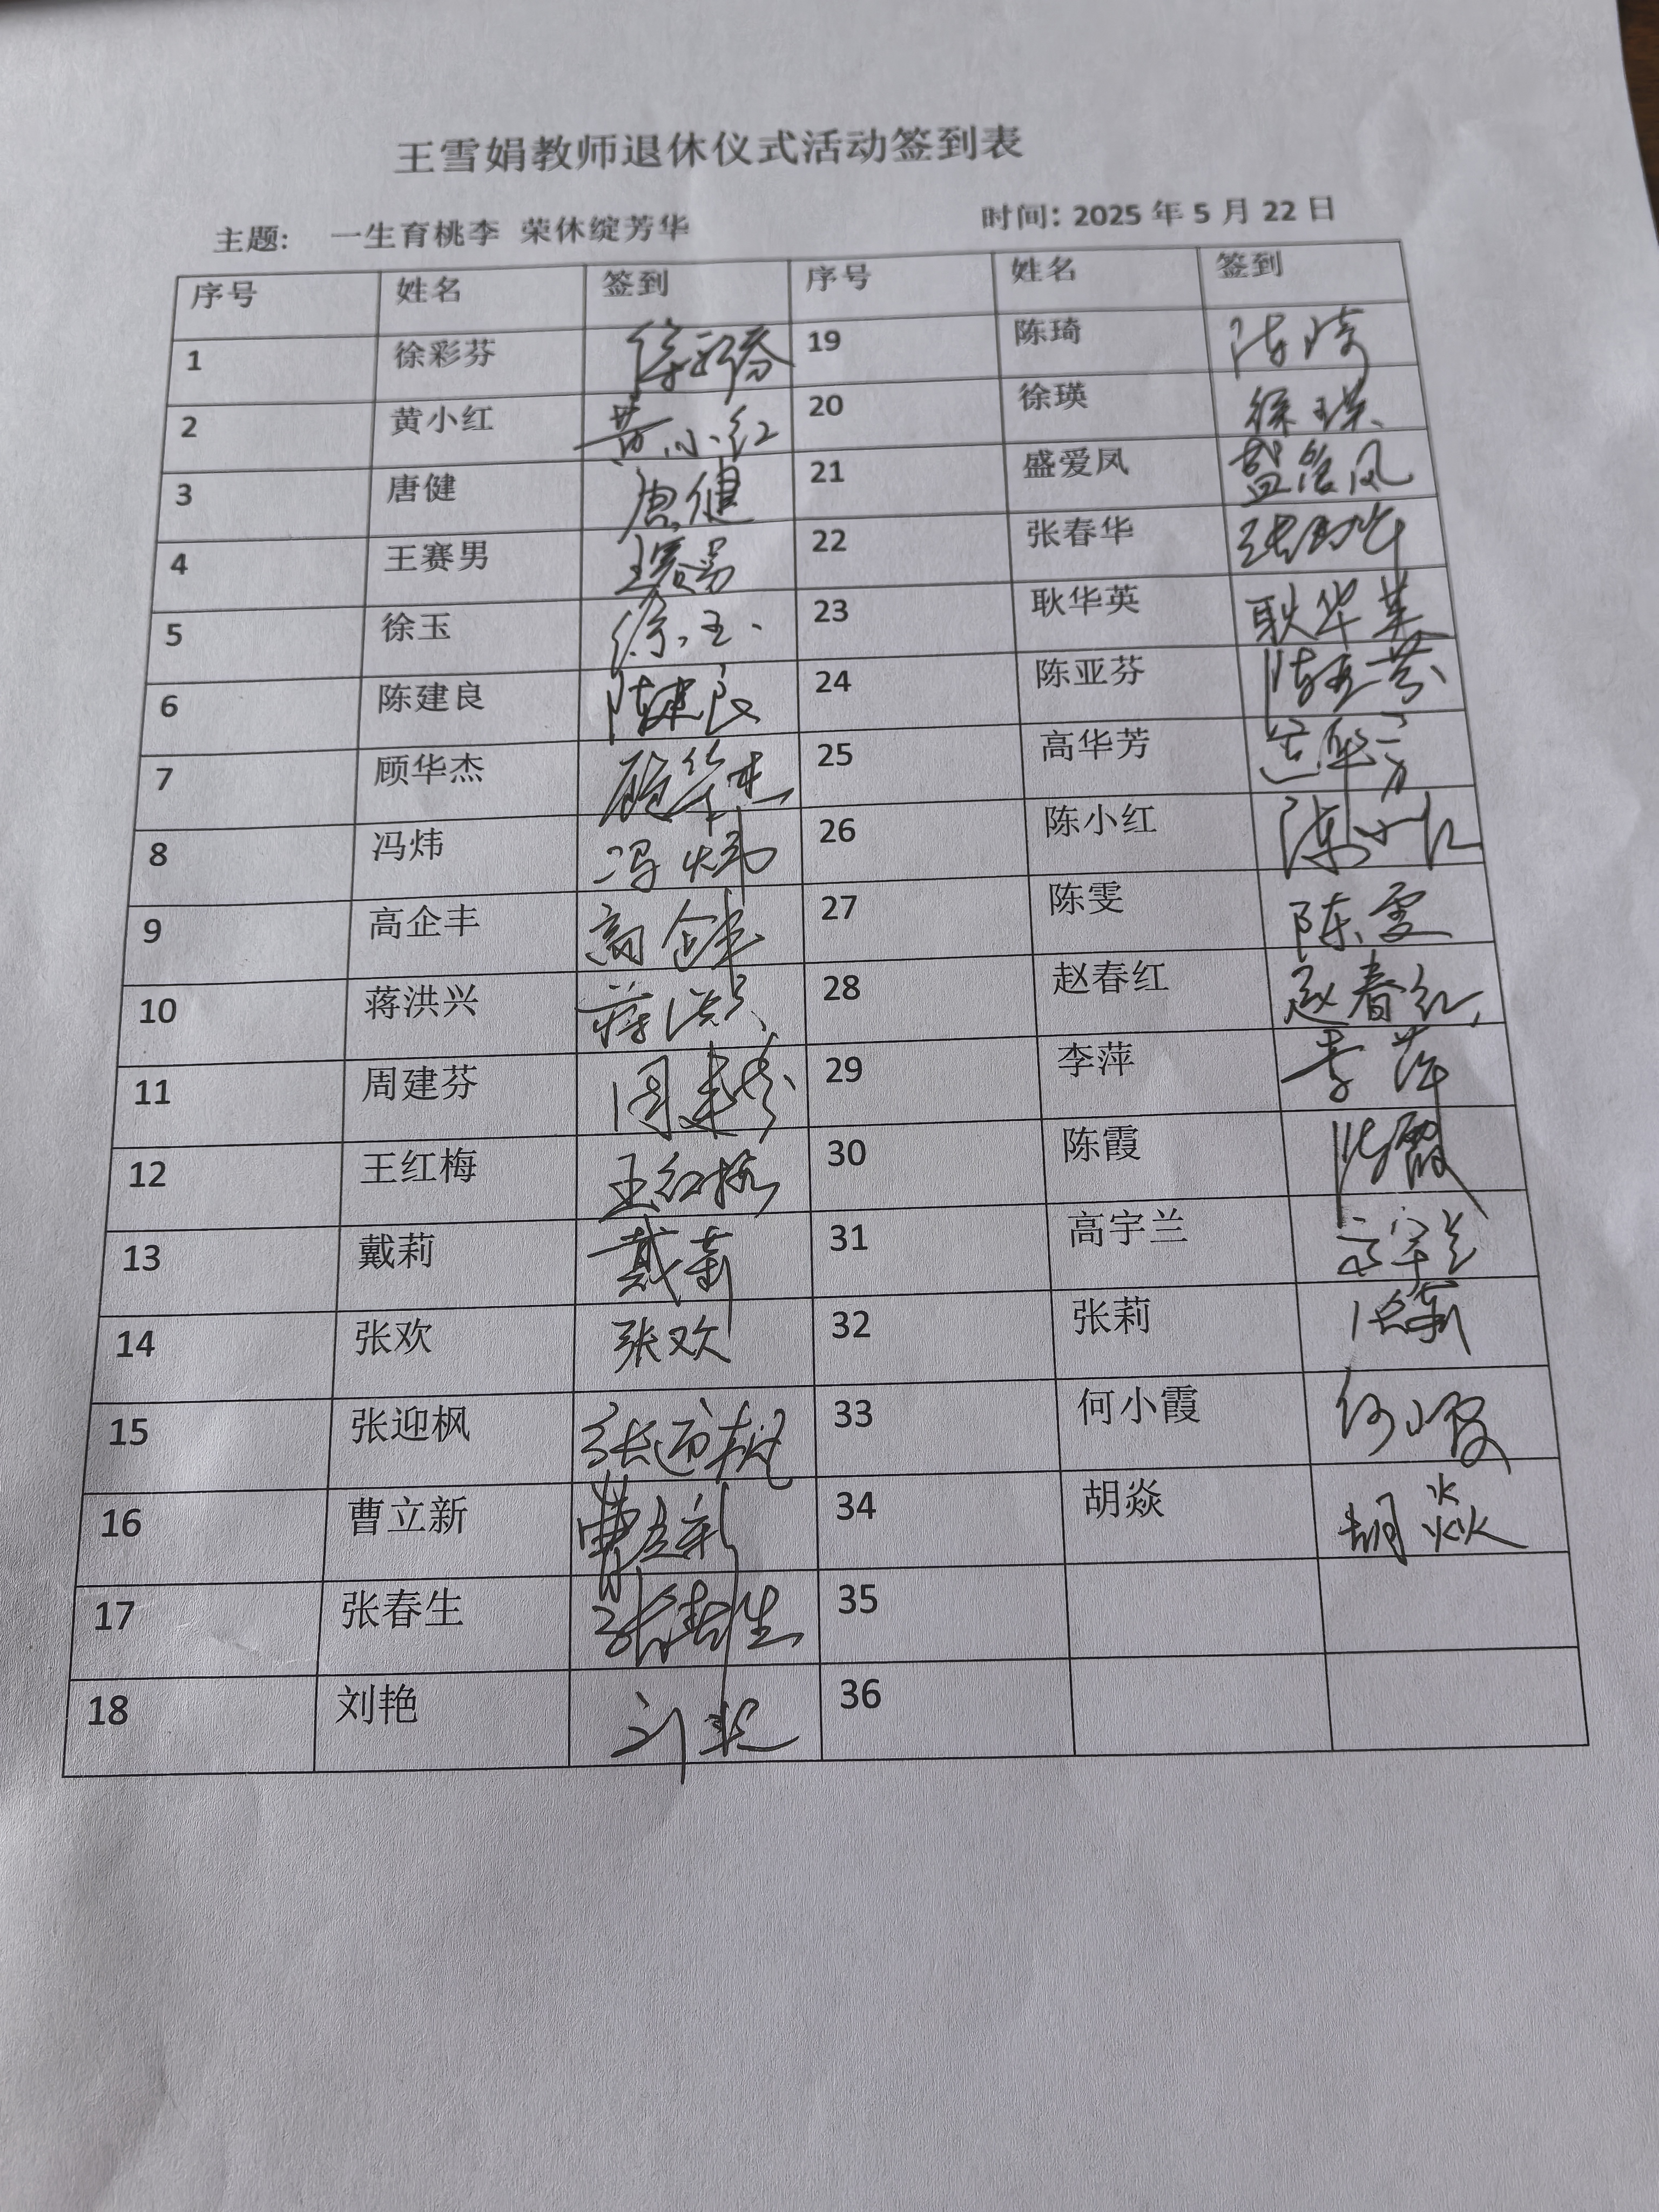 王雪娟教师退休仪式活动签到表
主题: 一生育桃李 荣休绽芳华 时间: 2025 年 5 月 22 日
序号 姓名 签到 序号 姓名 签到
1 徐彩芬 徐彩芬 19 陈琦 陈琦
2 黄小红 黄小红 20 徐瑛 徐瑛
3 唐健 唐健 21 盛爱凤 盛爱凤
4 王赛男 王赛男 22 张春华 张春华
5 徐玉 徐玉 23 耿华英 耿华英
6 陈建良 陈建良 24 陈亚芬 陈亚芬
7 顾华杰 顾华杰 25 高华芳 高华芳
8 冯炜 冯炜 26 陈小红 陈小红
9 高企丰 高企丰 27 陈雯 陈雯
10 蒋洪兴 蒋洪兴 28 赵春红 赵春红
11 周建芬 周建芬 29 李萍 李萍
12 王红梅 王红梅 30 陈霞 陈霞
13 戴莉 戴莉 31 高宇兰 高宇兰
14 张欢 张欢 32 张莉 张莉
15 张迎枫 张迎枫 33 何小霞 何小霞
16 曹立新 曹立新 34 胡焱 胡焱
17 张春生 张春生 35
18 刘艳 刘艳 36